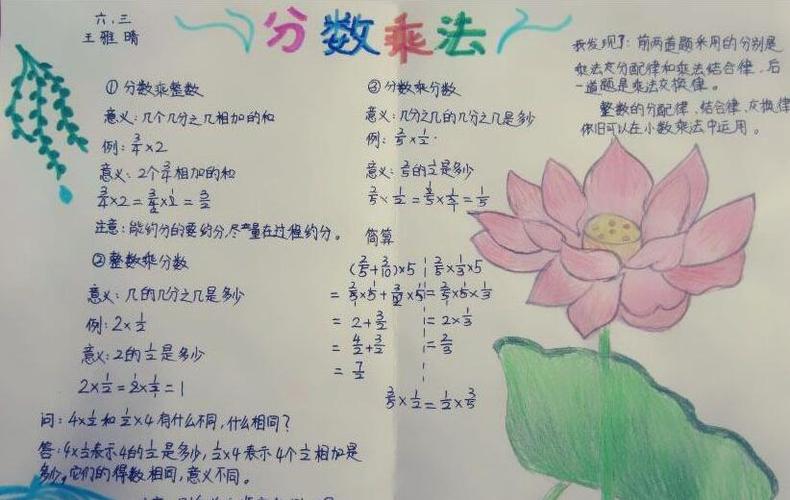 六.三
王雅晴
分数乘法
①分数乘整数
意义:几个几分之几相加的和
例:3/4×2
意义:2个3/4相加的和
3/4×2=3/4×2=3/2
注意:能约分的要约分,尽量在过程约分。
②整数乘分数
意义:几的几分之几是多少
例:2×1/2
意义:2的1/2是多少
2×1/2=2×1/2=1
问:4×1/2和1/2×4有什么不同,什么相同?
答:4×1/2表示4的1/2是多少,1/2×4表示4个1/2相加是
多少,它们的得数相同,意义不同。
③分数乘分数
意义:几分之几的几分之几是多少
例:2/5×1/2.
意义:2/5的1/2是多少
2/5×1/2=2/5×1/2=1/5
简算
(2/5+3/10)×5 2/5×1/3×5
=2/5×5+3/10×5 =2/5×5×1/3
=2+3/2 =2×1/3
=4/2+3/2 =2/3
=7/2
3/5×1/2=1/2×3/5
我发现了:前两道题采用的分别是
乘法交分配律和乘法结合律.后
一道题是乘法交换律。
整数的分配律.结合律.交换律
依旧可以在小数乘法中运用。